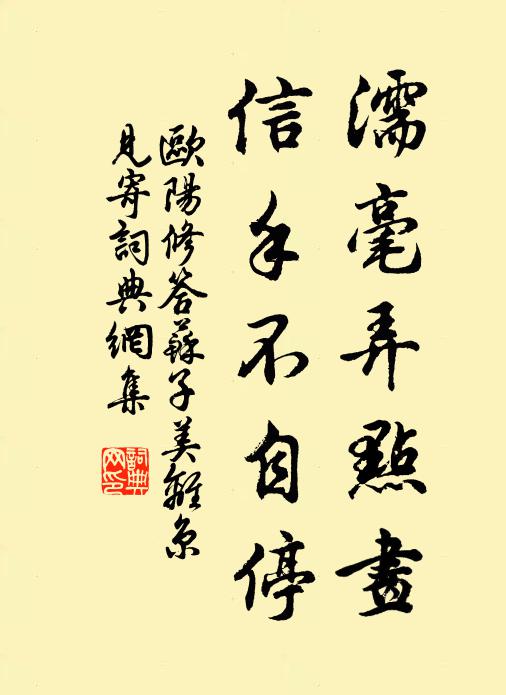 濡毫弄點畫
信手不自停
歐陽修答蘇子美離京
見寄詞典網集
詞典
网印